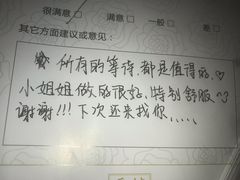 很满意 满意 一般 差
其它方面建议或意见：
所有的等待，都是值得的，♡
小姐姐做的很好，特别舒服
谢谢!!! 下次还来找你、、、、、